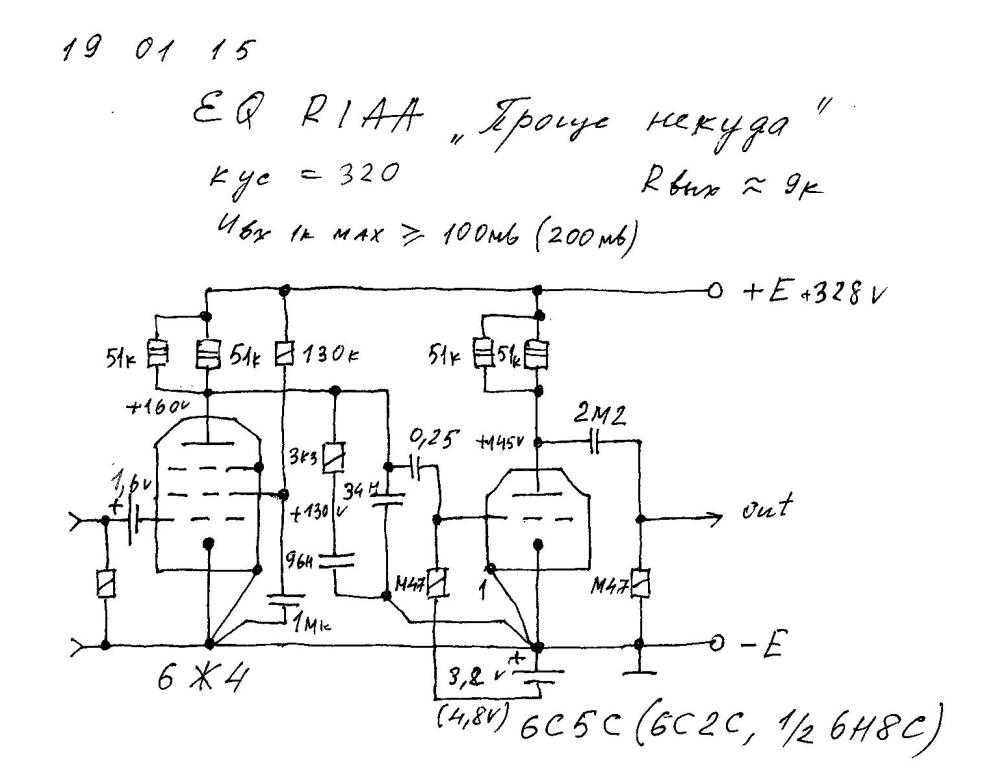 19 01 15
EQ RIAA „Проще некуда"
Кус = 320
Rвых ≈ 9к
Uвх 1к мах ≥ 100мв (200мв)
+E +328v
51к
51к
130к
51к
51к
+160v
2М2
0,25
+145v
3к3
1,6v
+
34н
+130v
out
96н
М47
1
М47
1мк
-E
+
6Ж4
3,2v
(4,8v)
6С5С (6С2С, 1/2 6Н8С)